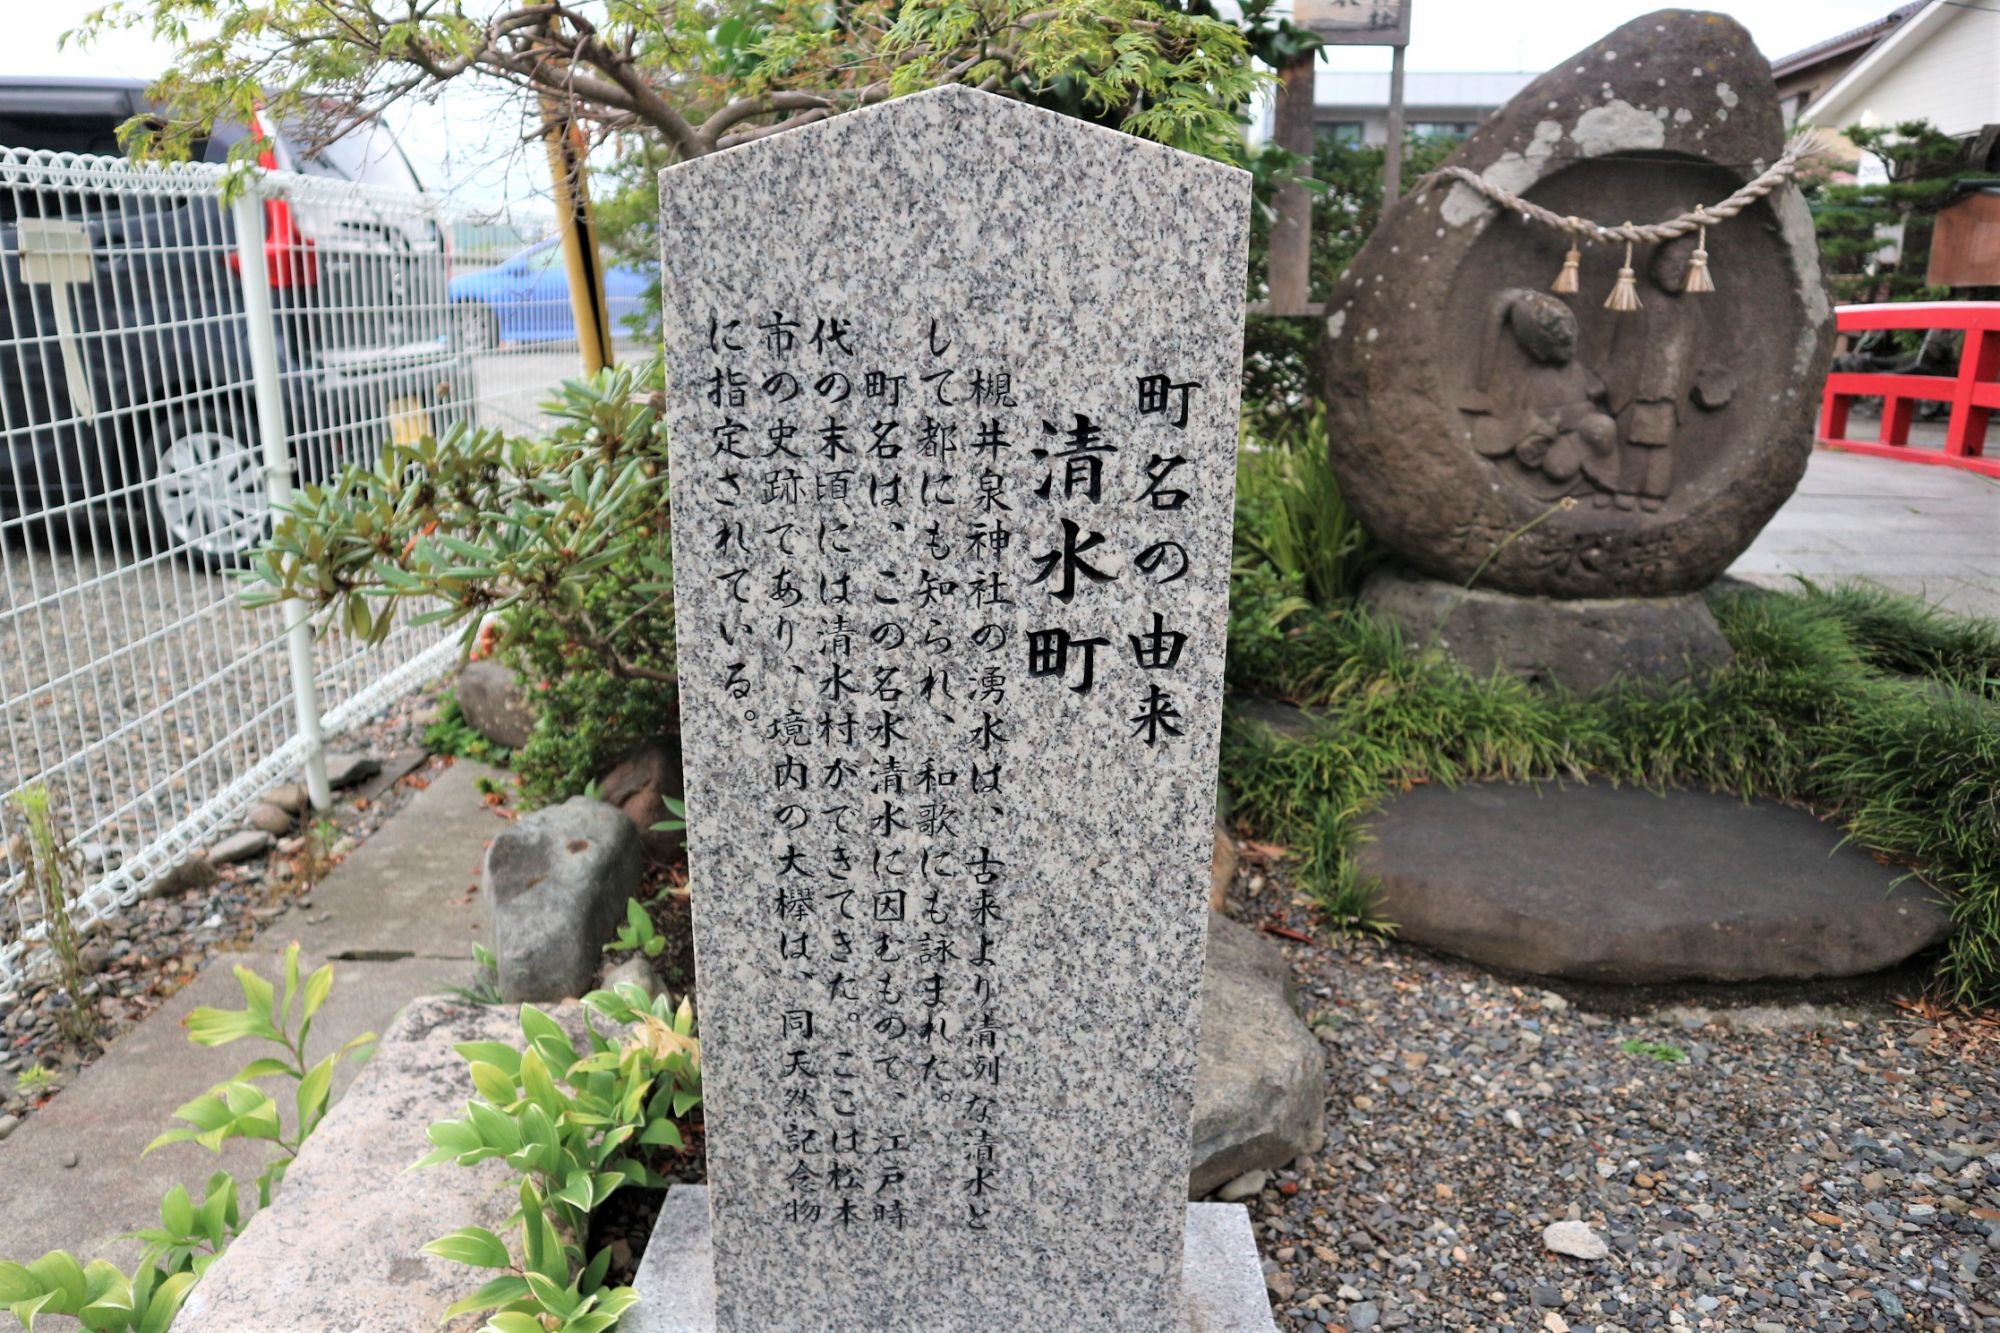 町名の由来
清水町
槻井泉神社の湧水は、古来より清冽な清水と
して都にも知られ、和歌にも詠まれた。
町名は、この名水清水に因むもので、江戸時
代の末頃には清水村ができてきた。ここは松本
市の史跡であり、境内の大欅は、同天然記念物
に指定されている。